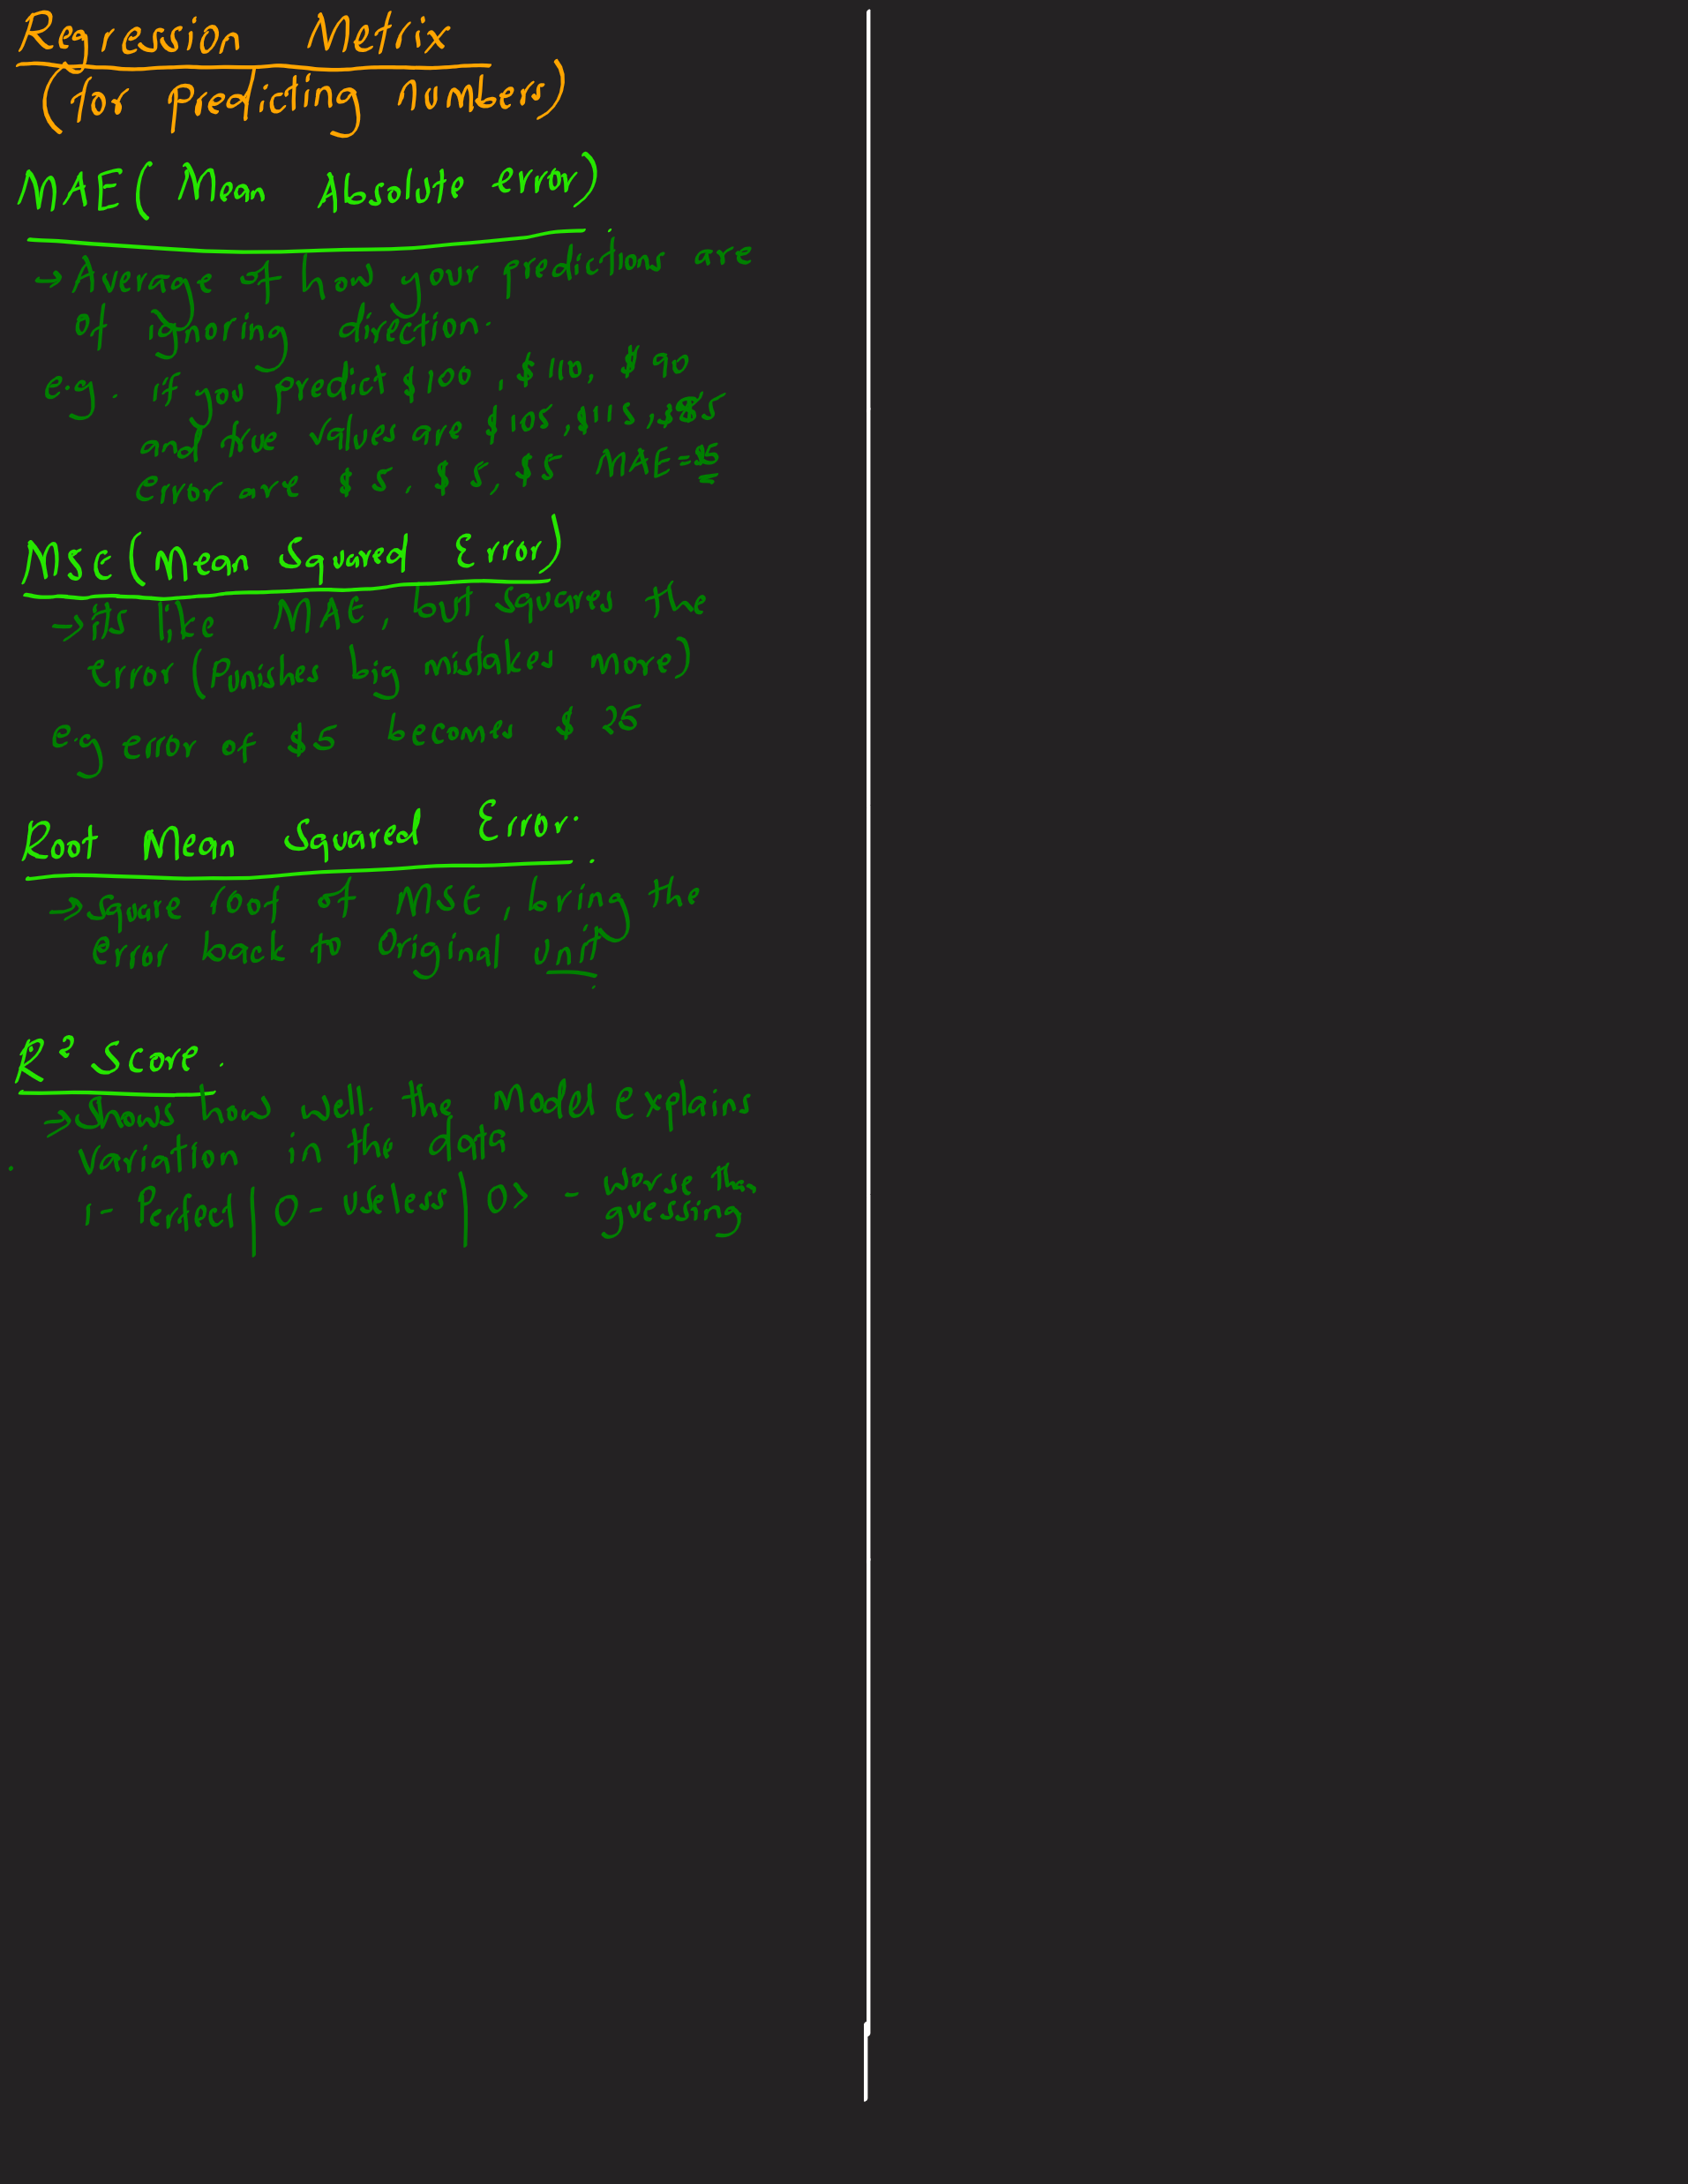 Regression Metrix
(for predicting numbers)
MAE( Mean Absolute error)
→ Average of how your predictions are
of ignoring direction.
e.g. if you predict $100, $110, $90
and true values are $105, $115, $85
error are $5, $5, $5 MAE=$5
MSE(Mean Squared Error)
→ its like MAE, but squares the
error (Punishes big mistakes more)
e.g error of $5 becomes $ 25
Root Mean Squared Error.
→ Square root of MSE, bring the
error back to Original unit
R² Score.
→ Shows how well. the Model explains
Variation in the data
1- Perfect | 0- useless | 0> - worse than
guessing